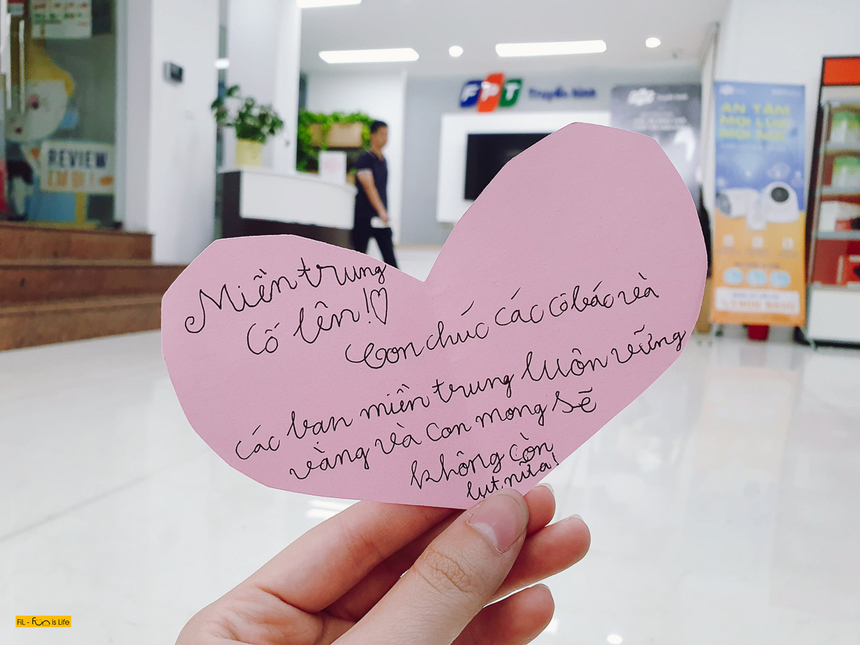 FPT Truyền hình
REVIEW
AN TÂM
MỌI LÚC
MỌI NƠI
Miền trung
cố lên!♡
Con chúc các cô bác và
các bạn miền trung luôn vững
vàng và con mong sẽ
không còn
lụt nữa!
FIL - Fun is Life